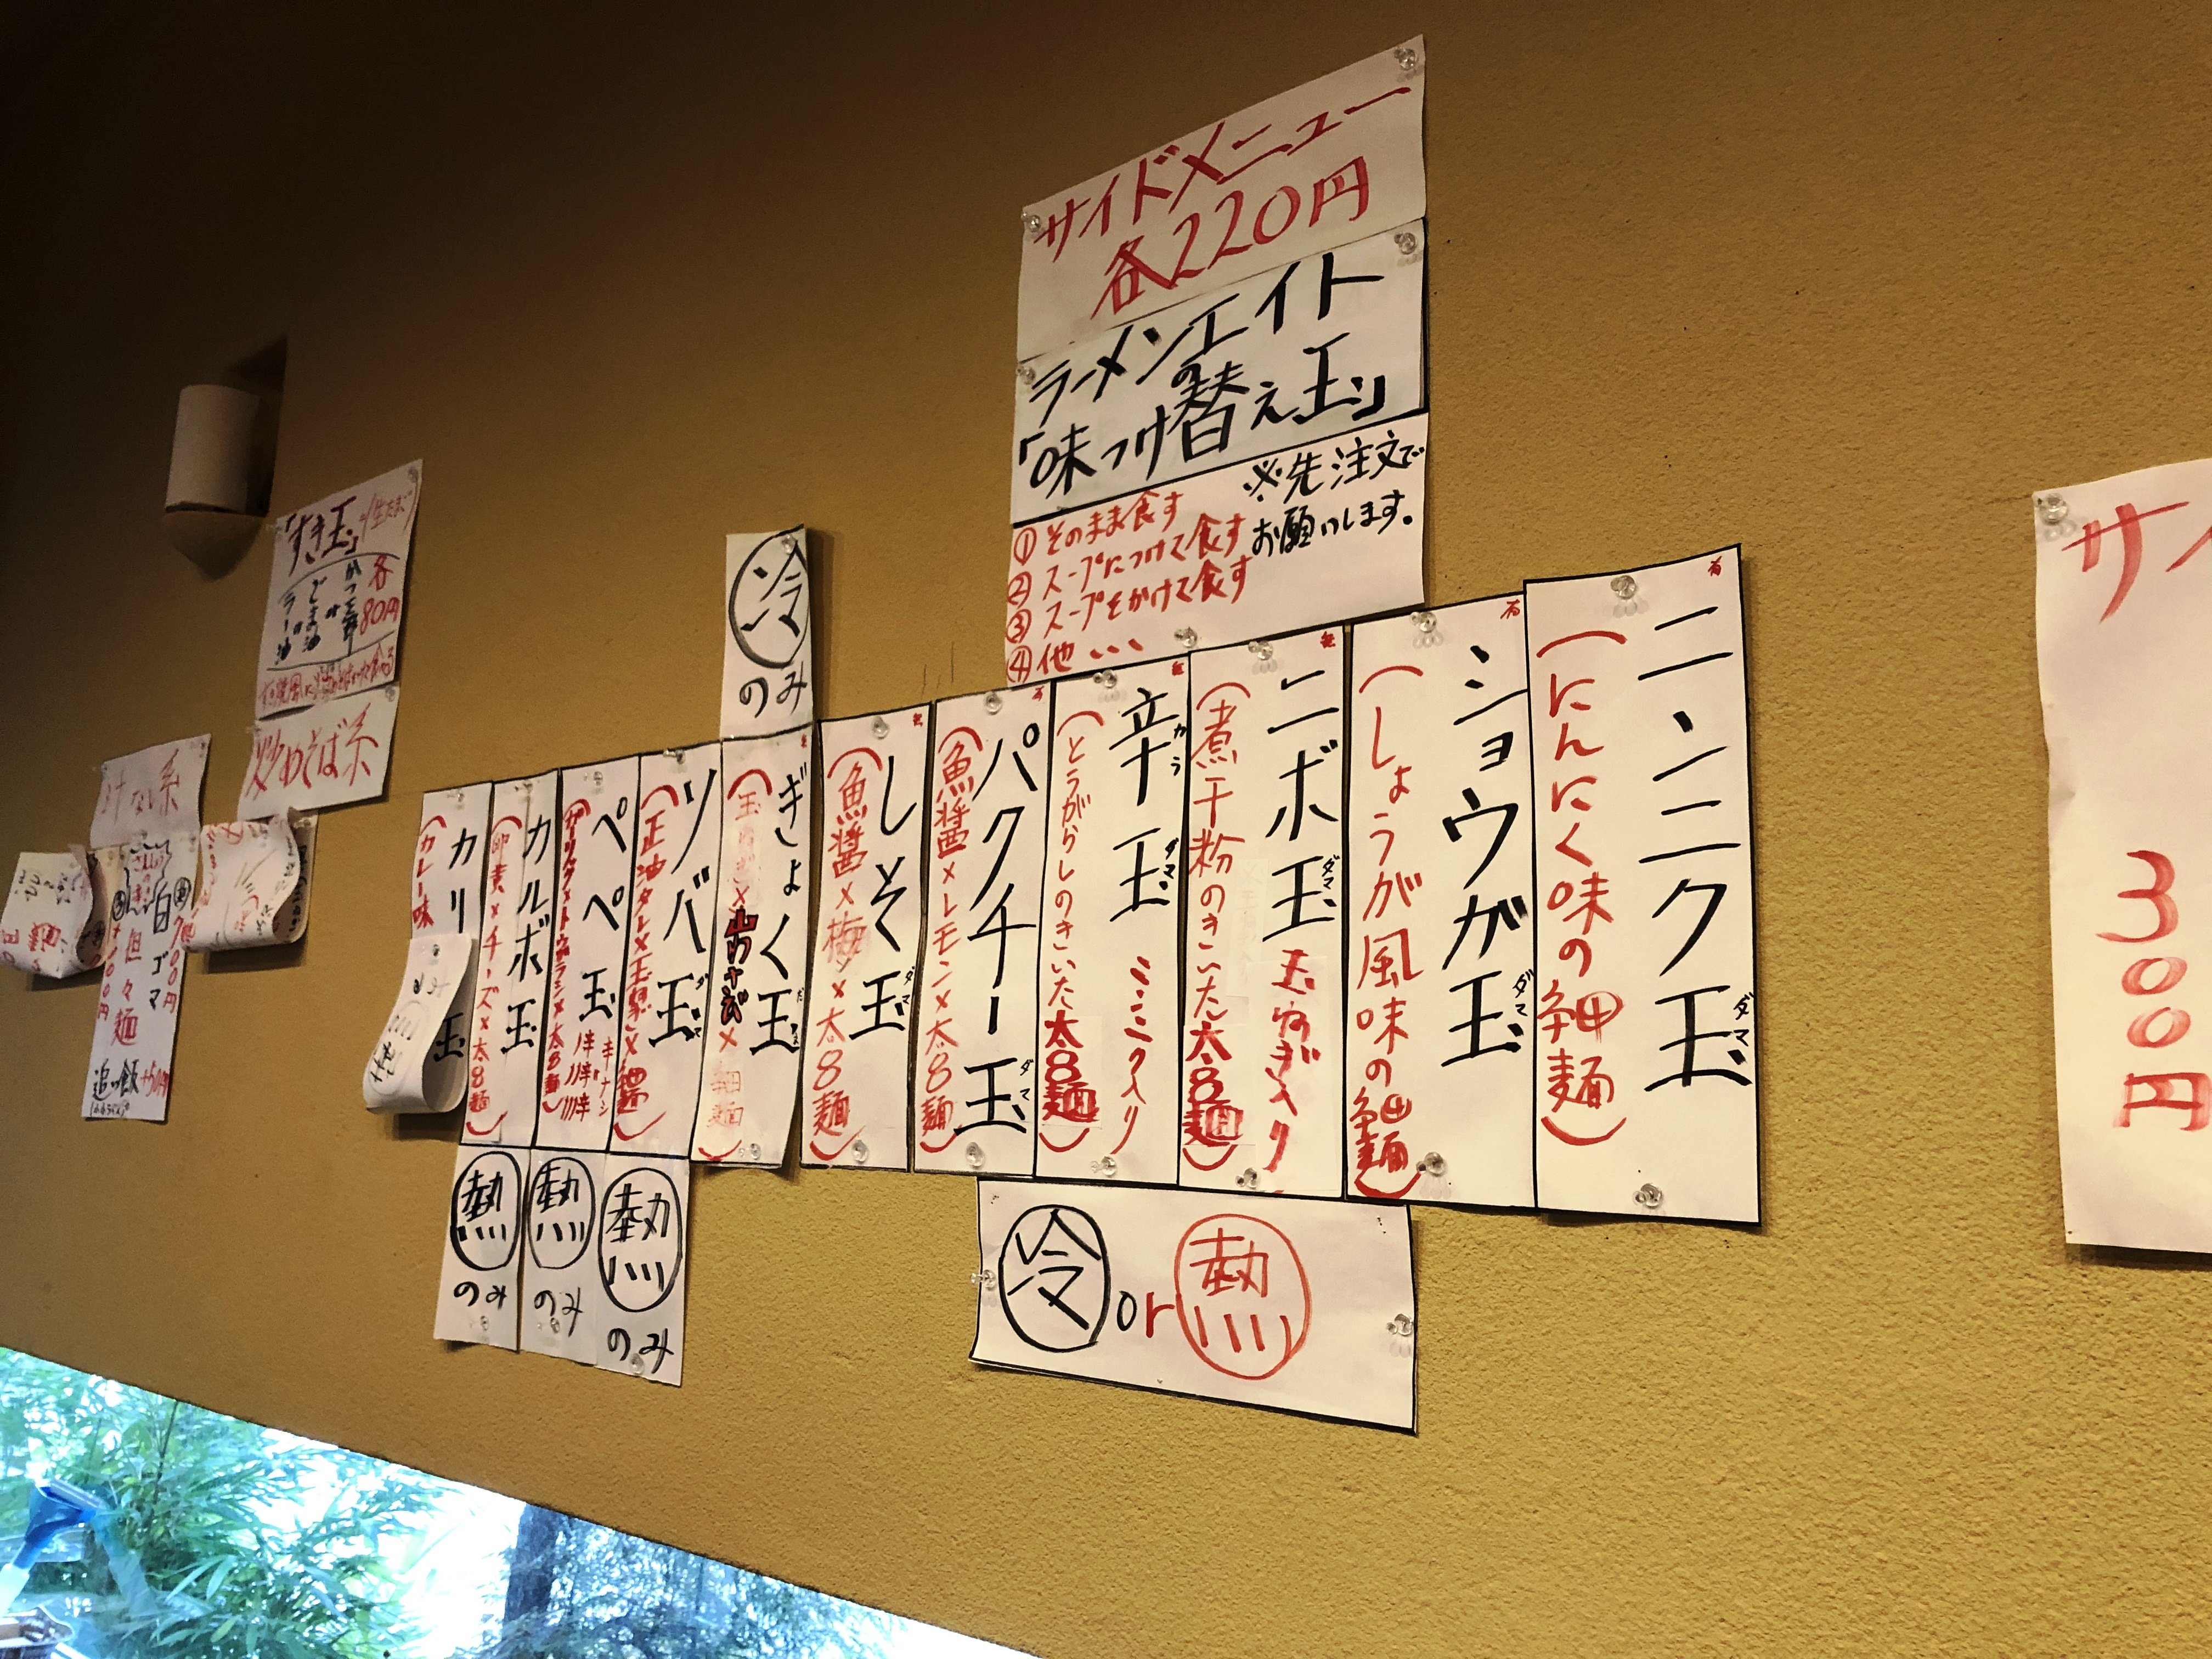 サイドメニュー
各220円
ラーメンエイト
の
「味つけ替え玉」
※先注文で
お願いします。
①そのまま食す
②スープにつけて食す
③スープをかけて食す
④他・・・
ニンニク玉
ダマ
(にんにく味の細麺)
ショウガ玉
ダマ
(しょうが風味の細麺)
ニボ玉
ダマ
玉ねぎ入り
(煮干粉のきいた太8麺)
辛玉
カラ
ダマ
ミミミク入り
(とうがらしのきいた太8麺)
パクチー玉
ダマ
(魚醤×レモン×太8麺)
しそ玉
ダマ
(魚醤×梅×太8麺)
冷
のみ
ぎょく玉
だま
ソバ玉
(正油タレ×玉ねぎ×細麺)
ペペ玉
カルボ玉
(卵黄×チーズ×太8麺)
カリ
玉
(カレー味
熱
のみ
熱
のみ
熱
のみ
冷or熱
「すき玉」(生たまご)
各
80円
ごま油
ラー油
炒めそば系
汁なし系
白ゴマ
担々麺
追い飯+50円
サイ
300円